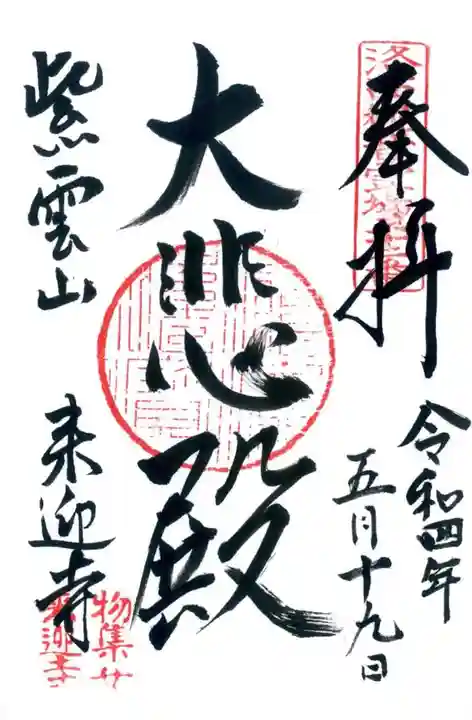 奉拝
令和四年
五月十九日
大悲殿
紫雲山
来迎寺
物集女
来迎寺